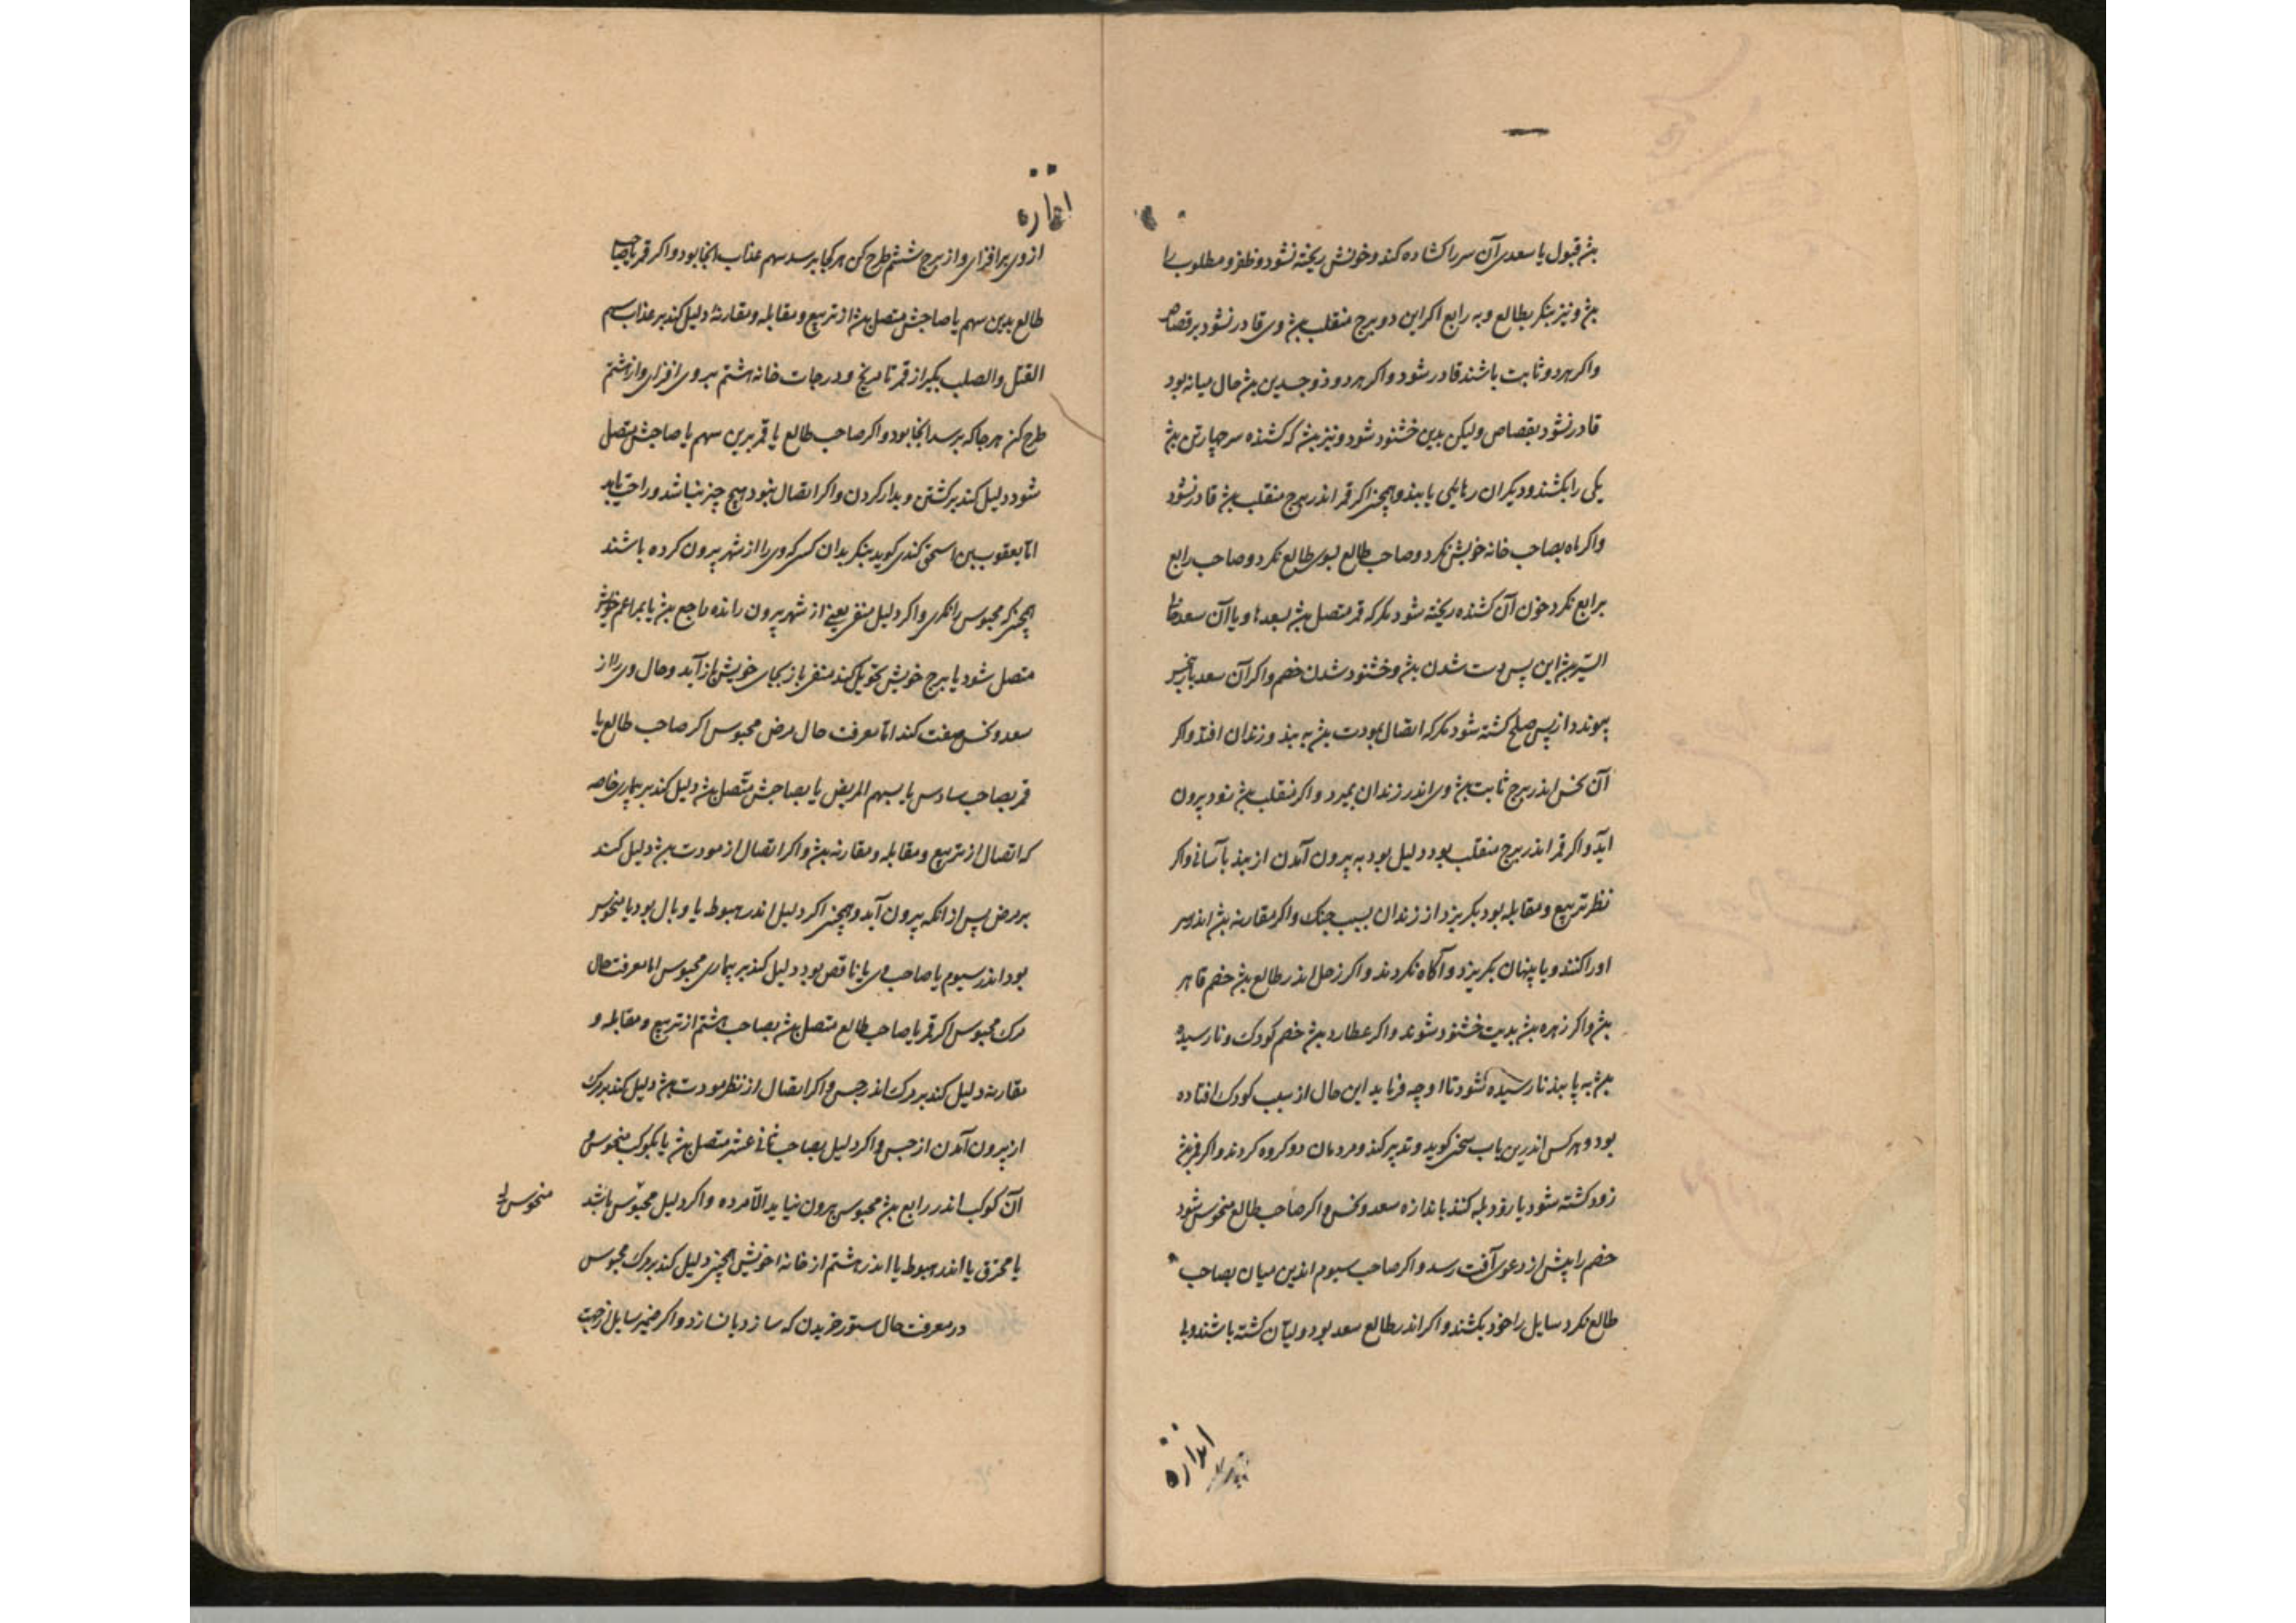 بش قبول یا سعدی آن سر را کشاده کند و خونش ریخته نشود و ظفر و مطلوب را
بش و نیز بنکر بطالع و به رابع اکر این دو برج منقلب بش وی قادر نشود بر قصاص
واکر هر دو ثابت باشند قادر شود واکر هر دو ذو جدین بش حال میانه بود
قادر نشود بقصاص ولیکن بدین خشنود شود و نیز بش که کشنده سر چهار تن بش
یکی را بکشند و دیکران رهایی یابند و همچنی اکر قمر اندر برج منقلب بش قادر نشود
واکر ماه بصاحب خانه خویش نکرد و صاحب طالع بسوی طالع نکرد و صاحب رابع
برابع نکرد خون آن کشنده ریخته شود مکر که قمر متصل بش بسعدها و یا آن سعد
بش این پس دست شدن بش و خشنود شدن خصم واکر آن سعد باز
پیوندد از پس صلح کشته شود مکر که اتصال بمودت بش به بند و زندان افتد واکر
آن نحس اندر برج ثابت بش وی اندر زندان بمیرد و اکر منقلب بش زود بیرون
آید واکر قمر اندر برج منقلب بود دلیل بود به بیرون آمدن از بند بآسانی واکر
نظر تربیع و مقابله بود بکریزد از زندان بسبب جنک واکر مقارنه بش اندر سر
او را کنند و یا پنهان بکریزد و آکاه نکردند واکر زحل اندر طالع بش خصم قاهر
بش واکر زهره بش بدیت خشنود شوند واکر عطارد بش خصم کودک و نارسیده
بش به پا بند نارسیده نشود تا او چه فرماید این حال از سبب کودک افتاده
بود و هر کس اندرین باب سخن کوید و تدبیر کند و مردمان دو کروه کردند واکر قمر بش
زود کشته شود یا زود بله کنند باندازه سعد و نحس واکر صاحب طالع منحوس شود
خصم را پیش از دعوی آفت رسد واکر صاحب سیوم اندین میان بصاحب
طالع نکرد سایل را خود بکشند واکر اندر طالع سعد بود ولی آن کشته باشند
اندازه
از وی برافزای و از برج ششم طرح کن هر کجا برسد سهم عذاب آنجا بود واکر قمر یا صاحب
طالع بدین سهم یا صاحبش متصل بش از تربیع و مقابله و مقارنه دلیل کند بر عذاب سهم
القتل والصلب بکیر از قمر تا مریخ و درجات خانه هشتم بروی افزای واز هشتم
طرح کن هر جا که برسد آنجا بود واکر صاحب طالع یا قمر برین سهم یا صاحبش متصل
شود دلیل کند بر کشتن و بدار کردن واکر اتصال نبود هیچ چیز نباشد و راحت یابد
اما یعقوب بن اسحق کندی کوید بنکر بدان کسی که وی را از شهر بیرون کرده باشند
همچنی که محبوس را نکری واکر دلیل منفی یعنی از شهر بیرون رانده راجع بش یا
متصل شود یا برج خویش تحویل کند منفی باز بجای خویش باز آید و حال وی را از
سعد و نحس صفت کند اما معرفت حال مرض محبوس اکر صاحب طالع یا
قمر بصاحب سادس یا بسهم المریض یا بصاحبش متصل بش دلیل کند بر بیماری خاصه
که اتصال از تربیع و مقابله و مقارنه بش و اکر اتصال از مودت بش دلیل کند
بر مرض پس از آنکه بیرون آید و همچنی اکر دلیل اندر هبوط یا وبال بود یا منحوس
بود اندر سیوم یا صاحب وی یا ناقص بود دلیل کند بر بیماری محبوس اما معرفت حال
مرک محبوس اکر قمر یا صاحب طالع متصل بش بصاحب هشتم از تربیع و مقابله و
مقارنه دلیل کند بر مرک اندر حبس و اکر اتصال از نظر مودت بش دلیل کند بر مرک
از بیرون آمدن از حبس واکر دلیل بصاحب ثانی عشر متصل بش یا بکوکب منحوس و
آن کوکب اندر رابع بش محبوس بیرون نیاید الا مرده واکر دلیل محبوس باشد
یا محترق یا اندر هبوط یا اندر هشتم از خانهٔ خویش همچنی دلیل کند بر مرک محبوس
در معرفت حال ستور خریدن که سازد یا نسازد واکر ضمیر سایل از جهت